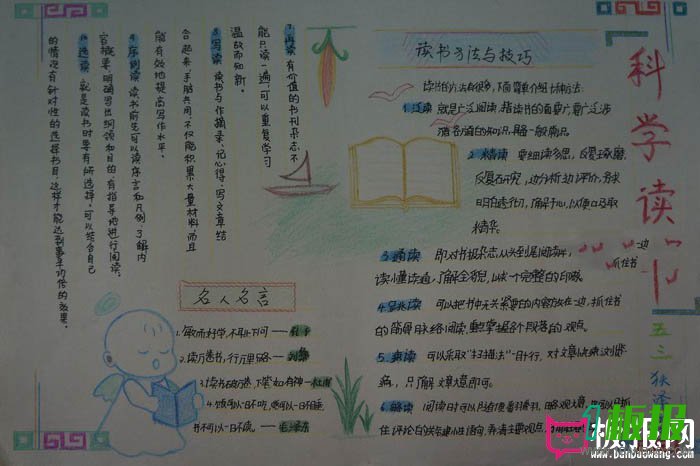 科学读书
五三
读书方法与技巧
读书的方法有很多，下面简单介绍十种方法：
1.泛读 就是广泛阅读，指读书的面要广，要广泛涉
猎各方面的知识，具备一般常识
2.精读 要细读多思，反复琢磨，
反复研究，边分析边评价，务求
明白透彻，了解于心，以便吸取
精华
3.通读 即对书报杂志从头到尾阅读，
读懂读通，了解全貌，以求一个完整的印象。
4.跳读 可以把书中无关紧要的内容放在一边，抓住书
的筋骨脉络阅读，重点掌握各个段落的观点。
5.速读 可以采取"扫描法"一目十行，对文章快速浏览
一遍，只了解文章大意即可。
6.略读 阅读时可以
住评论的关键性语句，弄清主要观点，
7.再读 有价值的书刊杂志不
能只读一遍，可以重复学习
温故而知新。
8.写读 读书与作摘录、记心得、写文章结
合起来，手脑共用，不仅能积累大量材料，而且
能有效地提高写作水平。
9.序例读 读书前先可以读序言和凡例，了解内
容概要，明确写书纲领和目的，有指导地进行阅读。
10.选读 就是读书时要有所选择，可以结合自己
的情况有针对性的选择书目，这样才能达到事半功倍的效果。
名人名言
1.敏而好学，不耻下问——孔子
2.读万卷书，行万里路——刘彝
3.读书破万卷，下笔如有神——杜甫
4.饭可以一日不吃，觉可以一日不睡，
书不可以一日不读。——毛泽东
板报
板报网
www.banbaowang.com